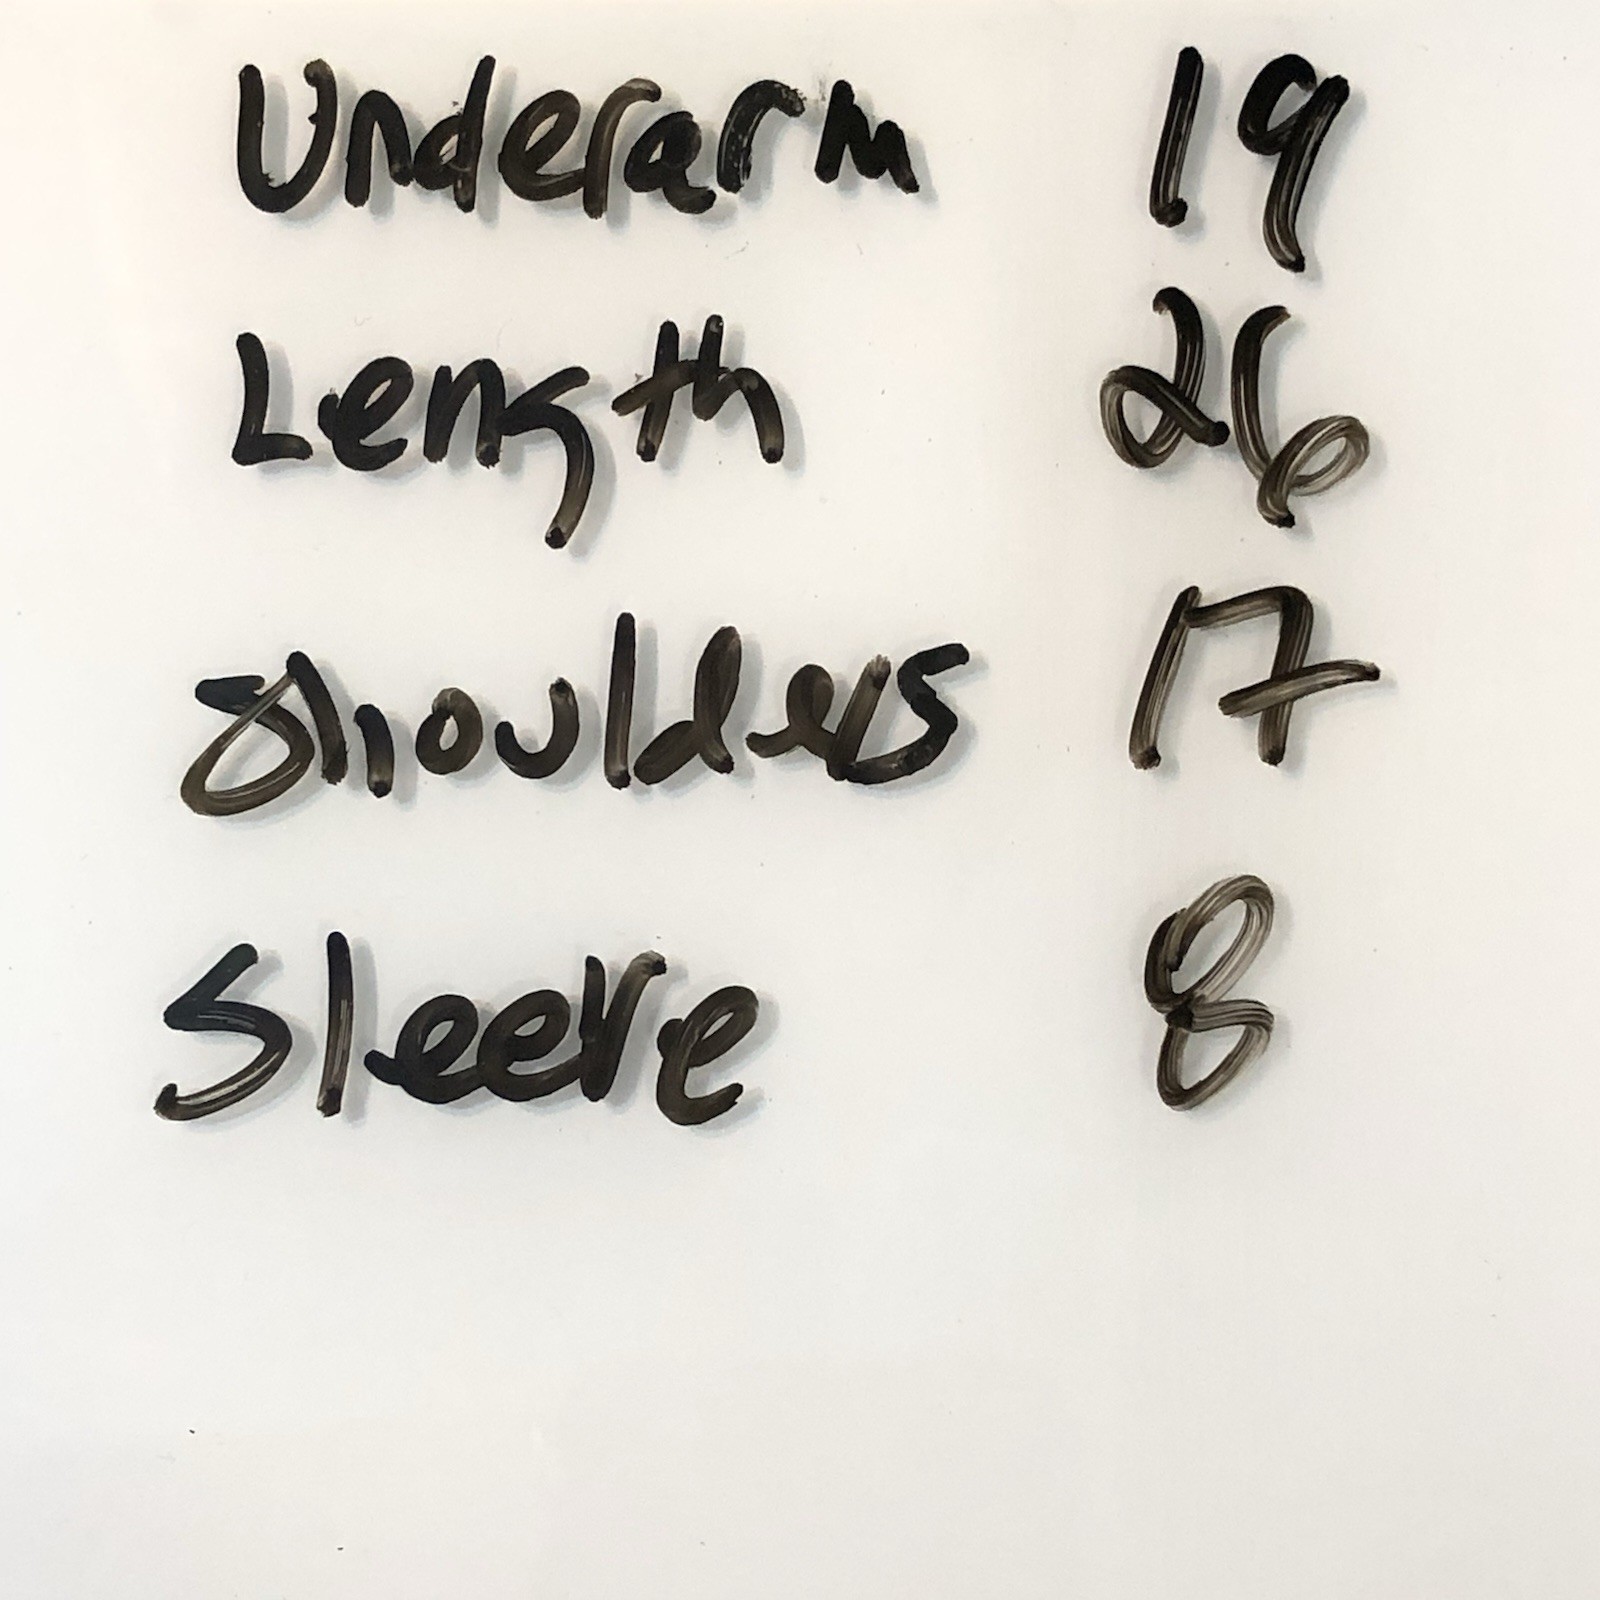 Underarm 19
Length 26
Shoulders 17
Sleeve 8